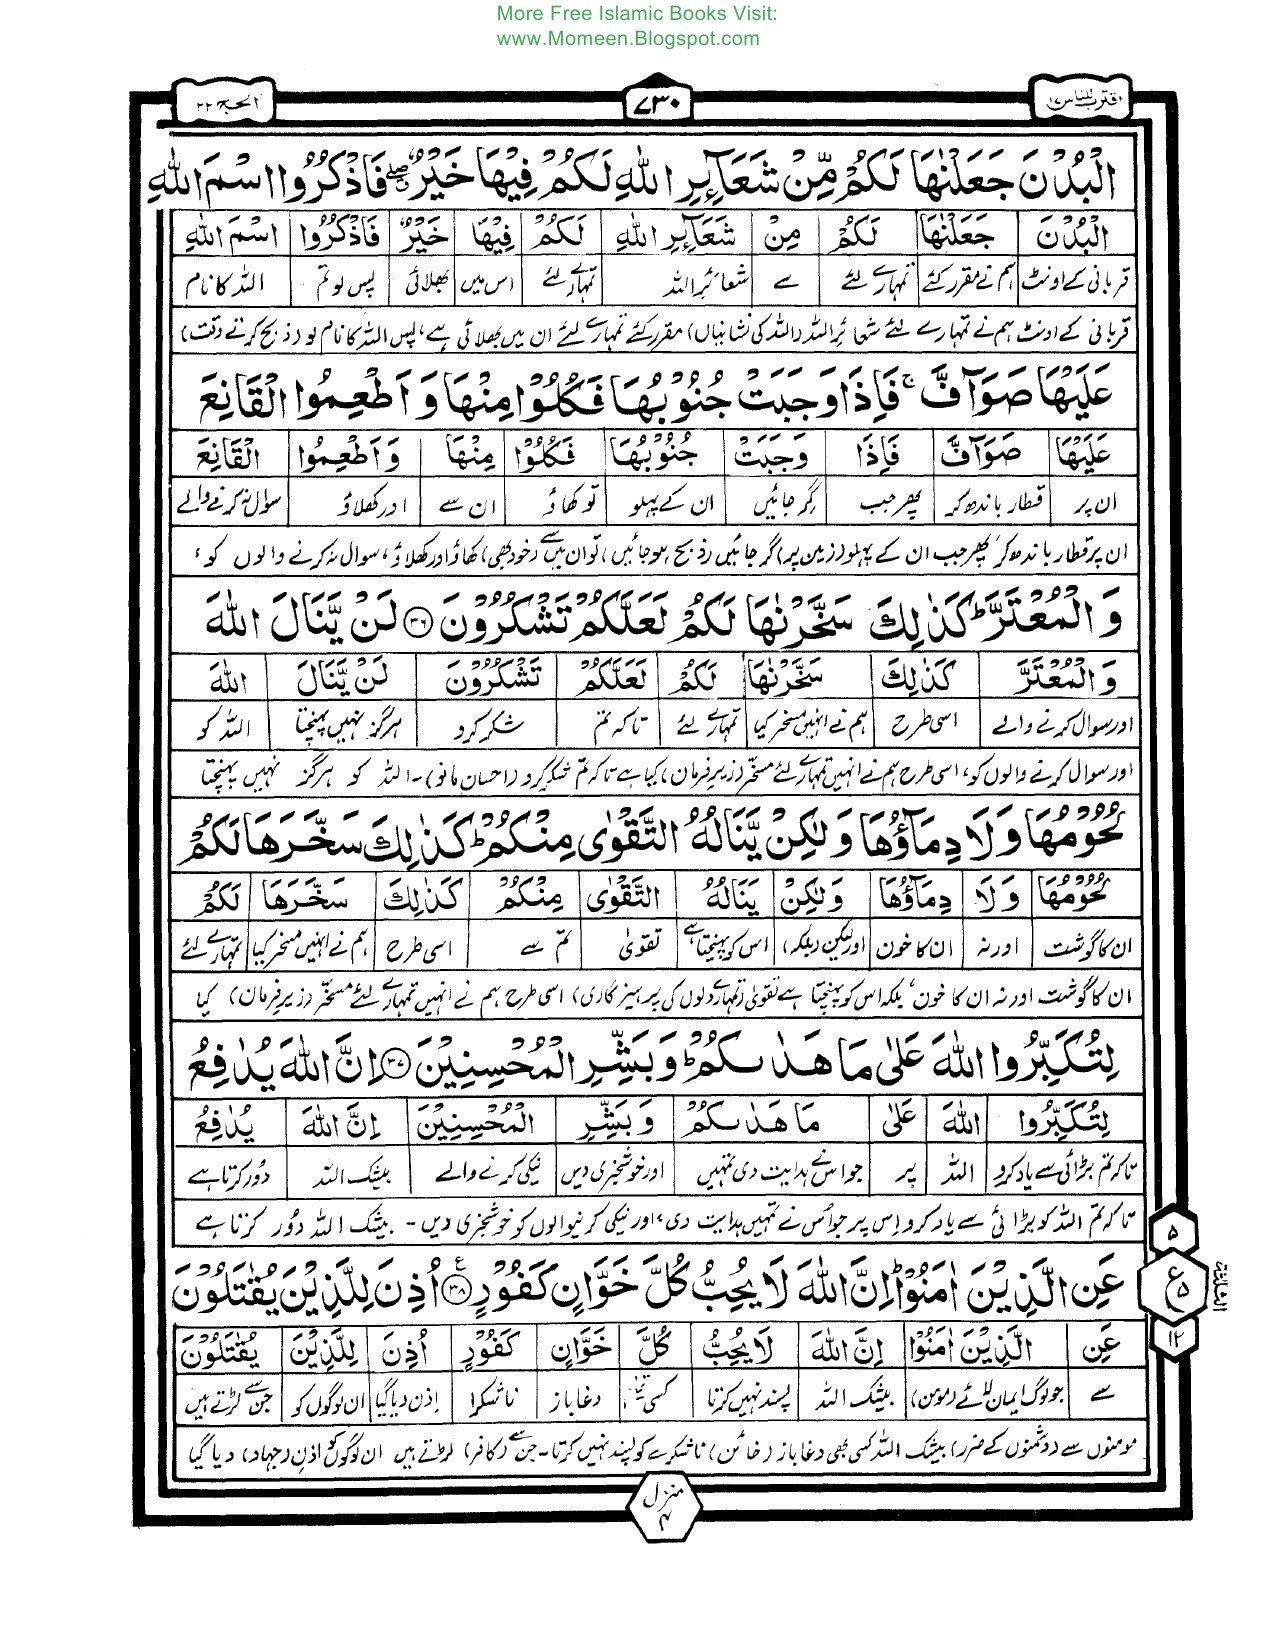 More Free Islamic Books Visit:
www.Momeen.Blogspot.com
اقترب للناس ۱۷
۷۳۰
الحج ۲۲
الْبُدْنَ جَعَلْنٰهَا لَكُمْ مِّنْ شَعَآئِرِ اللّٰهِ لَكُمْ فِيْهَا خَيْرٌ ۖ فَاذْكُرُوا اسْمَ اللّٰهِ
الْبُدْنَ جَعَلْنٰهَا لَكُمْ مِنْ شَعَآئِرِ اللّٰهِ لَكُمْ فِيْهَا خَيْرٌ فَاذْكُرُوا اسْمَ اللّٰهِ
قربانی کے اونٹ ہم نے مقرر کئے تمہارے لئے سے شعائر اللہ تمہارے لئے اس میں بھلائی پس لو تم اللہ کا نام
قربانی کے اونٹ ہم نے تمہارے لئے شعائر اللہ (اللہ کی نشانیاں) مقرر کئے تمہارے لئے ان میں بھلائی ہے، پس اللہ کا نام لو (ذبح کرتے وقت)
عَلَيْهَا صَوَآفَّ ۚ فَاِذَا وَجَبَتْ جُنُوْبُهَا فَكُلُوْا مِنْهَا وَاَطْعِمُوا الْقَانِعَ
عَلَيْهَا صَوَآفَّ فَاِذَا وَجَبَتْ جُنُوْبُهَا فَكُلُوْا مِنْهَا وَاَطْعِمُوا الْقَانِعَ
ان پر قطار باندھ کر پھر جب گر جائیں ان کے پہلو تو کھاؤ ان سے اور کھلاؤ سوال نہ کرنے والے
ان پر قطار باندھ کر، پھر جب ان کے پہلو (زمین پر) گر جائیں (ذبح ہو جائیں) تو ان میں سے (خود بھی) کھاؤ اور کھلاؤ، سوال نہ کرنے والوں کو،
وَالْمُعْتَرَّ ؕ كَذٰلِكَ سَخَّرْنٰهَا لَكُمْ لَعَلَّكُمْ تَشْكُرُوْنَ ۳۶ لَنْ يَّنَالَ اللّٰهَ
وَالْمُعْتَرَّ كَذٰلِكَ سَخَّرْنٰهَا لَكُمْ لَعَلَّكُمْ تَشْكُرُوْنَ لَنْ يَّنَالَ اللّٰهَ
اور سوال کرنے والے اسی طرح ہم نے انہیں مسخر کیا تمہارے لئے تاکہ تم شکر کرو ہرگز نہیں پہنچتا اللہ کو
اور سوال کرنے والوں کو، اسی طرح ہم نے انہیں تمہارے لئے مسخر (زیر فرمان) کیا ہے تاکہ تم شکر کرو (احسان مانو)۔ اللہ کو ہرگز نہیں پہنچتا
لُحُوْمُهَا وَلَا دِمَآؤُهَا وَلٰكِنْ يَّنَالُهُ التَّقْوٰى مِنْكُمْ ؕ كَذٰلِكَ سَخَّرَهَا لَكُمْ
لُحُوْمُهَا وَلَا دِمَآؤُهَا وَلٰكِنْ يَّنَالُهُ التَّقْوٰى مِنْكُمْ كَذٰلِكَ سَخَّرَهَا لَكُمْ
ان کا گوشت اور نہ ان کا خون اور لیکن (بلکہ) اس کو پہنچتا ہے تقویٰ تم سے اسی طرح ہم نے انہیں مسخر کیا تمہارے لئے
ان کا گوشت اور نہ ان کا خون، بلکہ اس کو پہنچتا ہے تقویٰ (تمہارے دلوں کی پرہیزگاری) اسی طرح ہم نے انہیں تمہارے لئے مسخر (زیر فرمان) کیا
لِتُكَبِّرُوا اللّٰهَ عَلٰى مَا هَدٰىكُمْ ؕ وَبَشِّرِ الْمُحْسِنِيْنَ ۳۷ اِنَّ اللّٰهَ يُدٰفِعُ
لِتُكَبِّرُوا اللّٰهَ عَلٰى مَا هَدٰىكُمْ وَبَشِّرِ الْمُحْسِنِيْنَ اِنَّ اللّٰهَ يُدٰفِعُ
تاکہ تم بڑائی سے یاد کرو اللہ پر جو اس نے ہدایت دی تمہیں اور خوشخبری دیں نیکی کرنے والے بیشک اللہ دور کرتا ہے
تاکہ تم اللہ کو بڑائی سے یاد کرو اس پر جو اُس نے تمہیں ہدایت دی، اور نیکی کرنیوالوں کو خوشخبری دیں۔ بیشک اللہ دُور کرتا ہے
عَنِ الَّذِيْنَ اٰمَنُوْا ؕ اِنَّ اللّٰهَ لَا يُحِبُّ كُلَّ خَوَّانٍ كَفُوْرٍ ۳۸ ع اُذِنَ لِلَّذِيْنَ يُقٰتَلُوْنَ
عَنِ الَّذِيْنَ اٰمَنُوْا اِنَّ اللّٰهَ لَا يُحِبُّ كُلَّ خَوَّانٍ كَفُوْرٍ اُذِنَ لِلَّذِيْنَ يُقٰتَلُوْنَ
سے جو لوگ ایمان لائے (مومن) بیشک اللہ پسند نہیں کرتا کسی دغا باز ناشکرا اذن دیا گیا ان لوگوں کو جن سے لڑتے ہیں
مومنوں سے (دشمنوں کے ضرر) بیشک اللہ کسی بھی دغا باز (خائن) ناشکرے کو پسند نہیں کرتا۔ جن سے (کافر) لڑتے ہیں ان لوگوں کو اذنِ (جہاد) دیا گیا
۵
ع ۵
۱۲
منزل ۴